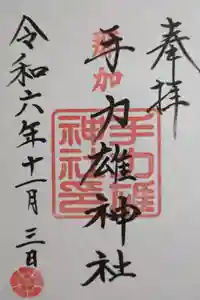 奉拝
各加
手力雄神社
手力雄
神社印
令和六年十一月三日